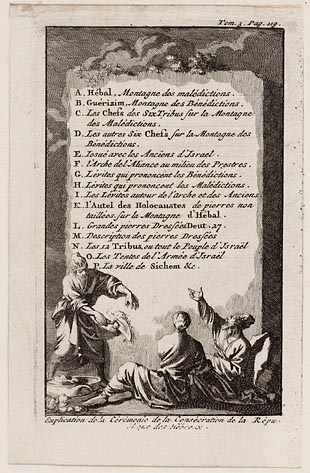 Tom. 3. Pag. 219.
A. Hébal, Montagne des malédictions.
B. Guérizim, Montagne des Bénédictions.
C. Les Chefs des Six Tribus sur la Montagne
des Malédictions.
D. Les autres Six Chefs sur la Montagne des
Bénédictions.
E. Iosué avec les Anciens d'Israel.
F. l'Arche de l'Aliance au milieu des Prestres.
G. Lévites qui prononcent les Bénédictions.
H. Lévites qui prononcent les Malédictions.
I. Les Lévites autour de l'arche et des Anciens
K. l'Autel des Holocaustes de pierres non
taillées, sur la Montagne d'Hébal.
L. Grandes pierres Dressées Deut. 27.
M. Description des pierres Dressées
N. Les 12 Tribus, ou tout le Peuple d'Israël
O. Les Tentes de l'Armée d'Israël
P. La ville de Sichem &c.
Explication de la Cérémonie de la Consécration de la Répu-
blique des Hébreux.